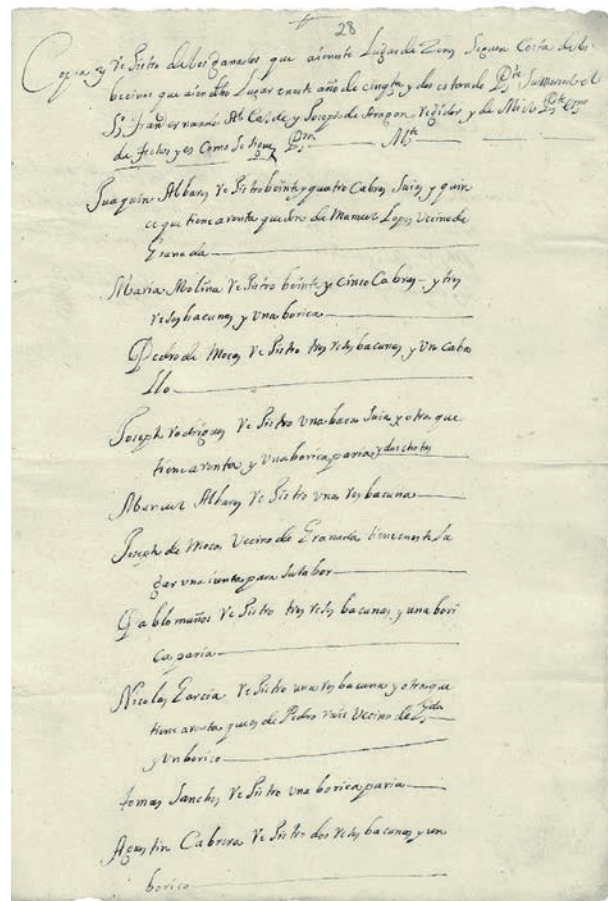 28
Copia y Re Jistro de los ganados que ai en este Lugar de Zenes Seguen Costa de los
becinos que ai en dho Lugar en este año de cinqta y dos estando Pte Su merced el
Sr. Fran ernandes Al Calde y Joseph de Aragon Regidor y de Mi el Pte esno
de fechos y es Como Se sigue
Juaquin Albares Re Jistro beinte y quatro Cabras Suias y quin
ce que tiene a renta que son de Manuel Lopes Vecino de
Granada
Maria Molina Re Jistro beinte y cinco Cabras y tres
reses bacunas y Una borica
Pedro de Moia Re Jistro tres reses bacunas y Un Caba
llo
Joseph rodrigues Re Jistro Una baca Suia y otra que
tiene a renta y Una borica paria y dos chotos
Manuel Albares Re Jistro Una res bacuna
Joseph de Moia Vecino de Granada tiene en este Lu
gar una iunta para Su labor
Pablo muños Re Jistro tres reses bacunas y una bori
ca paria
Nicolas Garcia Re Jistro una res bacuna y otra que
tiene a renta que es de Pedro ruis Vecino de
y Un borico
tomas Sanches Re Jistro Una borica paria
Agustin Cabrera Re Jistro dos reses bacunas y un
borico